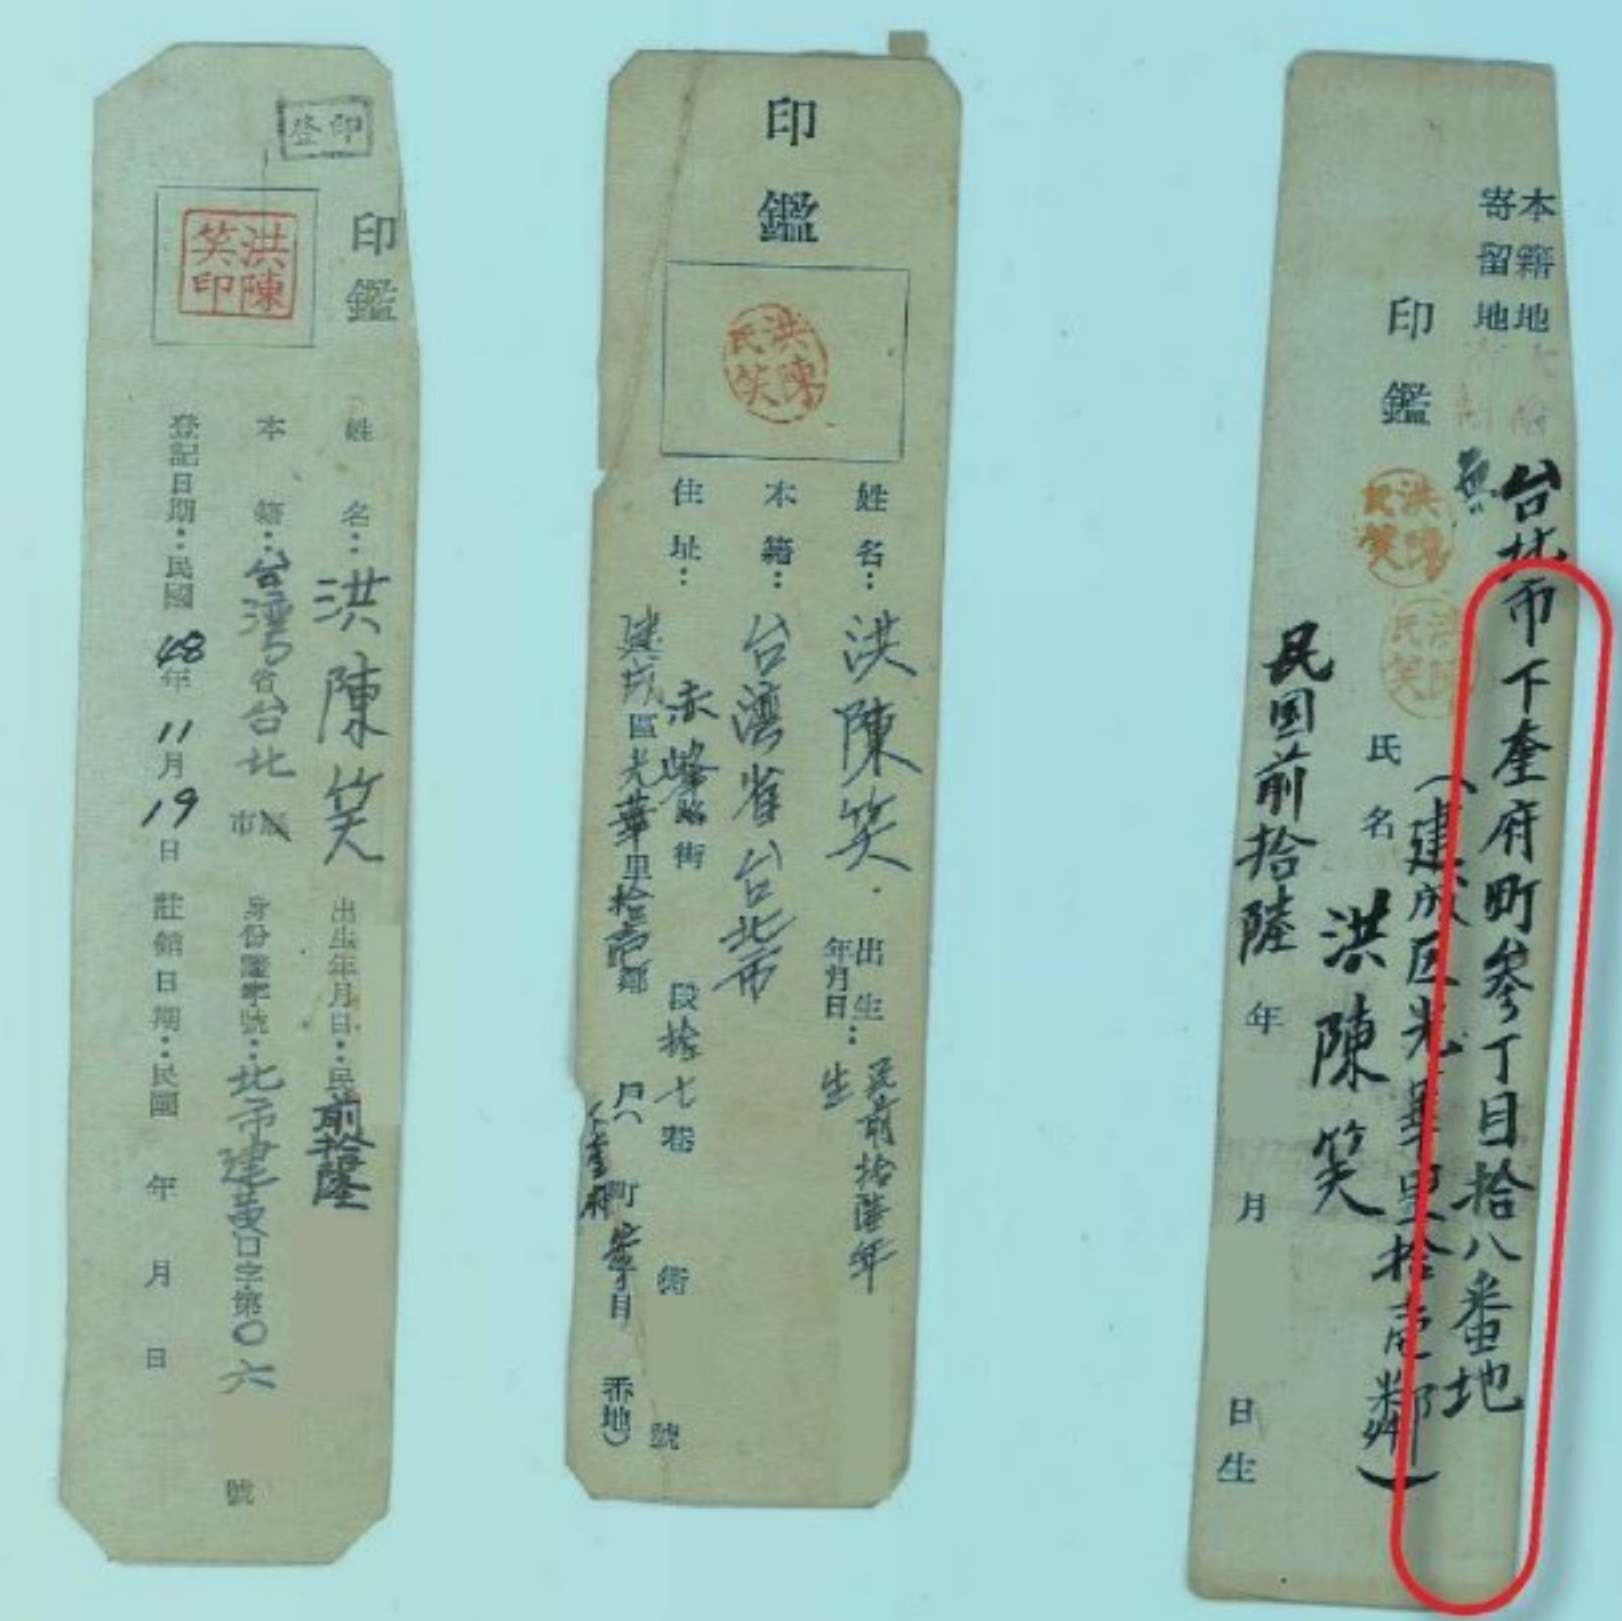 印登
印鑑
洪陳笑印
姓名：洪陳笑 出生年月日：民前拾陸
本籍：台湾省台北市縣 身份證字號：北市建黃口字第〇六 號
登記日期：民國48年11月19日 註銷日期：民國 年 月 日
印鑑
洪陳民笑
姓名：洪陳笑 出生年月日：民前拾陸年 生
本籍：台灣省台北市
住址：建成區光華里拾壱鄰 戶
赤峰路街 段拾七巷 衖 號
(下奎府町参丁目 番地)
本籍地 台北市下奎府町參丁目拾八番地
寄留地 無
(建成区光華里拾壱鄰)
印鑑
洪陳民笑
洪陳民笑
氏名 洪陳笑
民国前拾陸年 月 日生